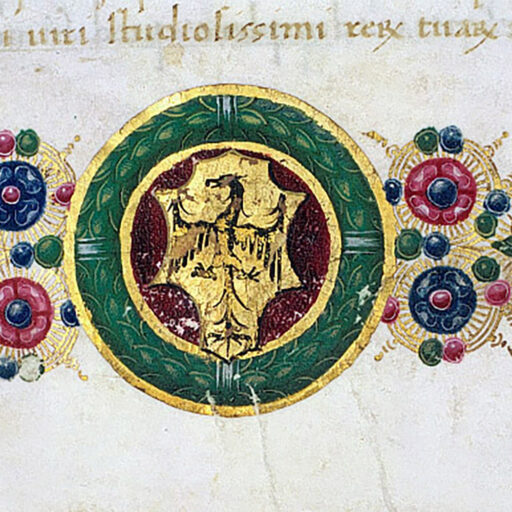 i uiri studiosissimi rerꝝ tuarꝝ